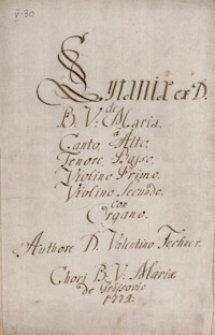 9-30
Lytaniæ ex D.
de
B. V: Maria.
à
Canto, Alto,
Tenore, Basso,
Violino Primo,
Violino Secundo.
con
Organo.
Authore D. Valentino
Chori B. V: Mariæ
De